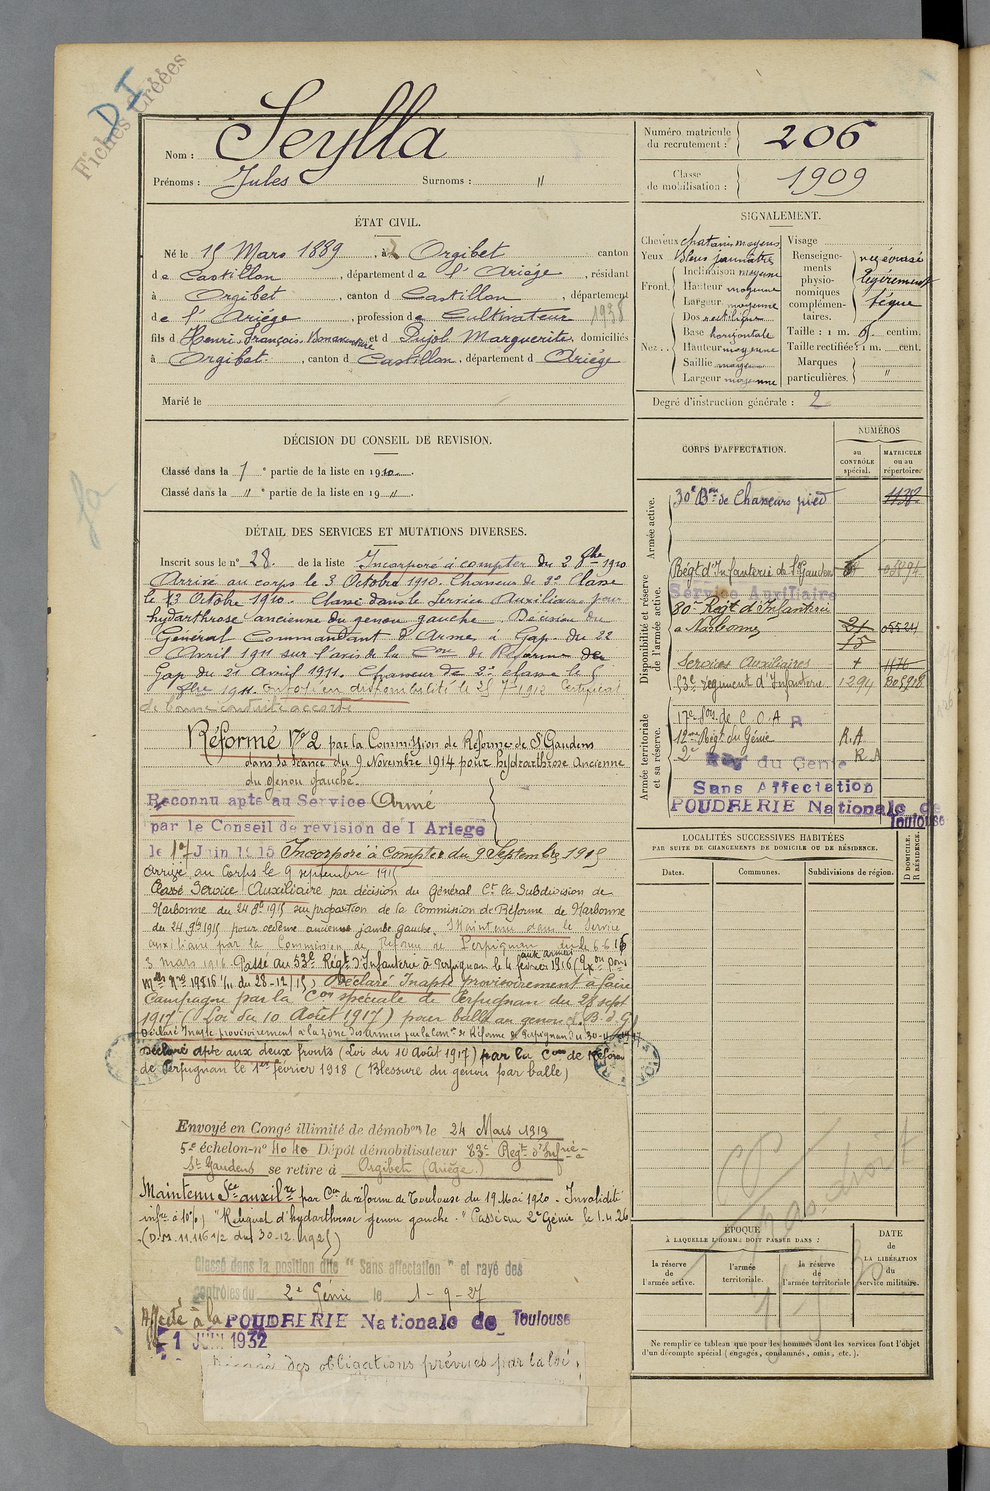 Fiches Créées
D I
Nom : Seylla
Prénoms : Jules Surnoms : "
ÉTAT CIVIL.
Né le 15 Mars 1889, à Orgibet canton
de Castillon, département de l'Ariége, résidant
à Orgibet, canton d Castillon, département
de l'Ariége, profession de Cultivateur 1938
fils d Henri François Bonaventure et d Pujol Marguerite, domiciliés
à Orgibet, canton d Castillon, département d Ariége
Marié le
DÉCISION DU CONSEIL DE REVISION.
Classé dans la 1e partie de la liste en 1910.
Classé dans la " e partie de la liste en 19 "
DÉTAIL DES SERVICES ET MUTATIONS DIVERSES.
Inscrit sous le n° 28. de la liste Incorporé à compter du 2 8bre 1910
Arrivé au corps le 3 Octobre 1910. Chasseur de 2e Classe
le 13 Octobre 1910. Classé dans le Service Auxiliaire pour
hydarthrose ancienne du genou gauche. Décision du
Général Commandant d'Armes à Gap du 22
Avril 1911 sur l'avis de la Con de Réforme de
Gap du 21 Avril 1911. Chasseur de 2e classe le 5
1911. Envoyé en disponibilité le 25 7bre 1912 Certificat
de bonne conduite accordé
Réformé N°2 par la Commission de Réforme de St Gaudens
dans sa séance du 9 Novembre 1914 pour hydroarthrose ancienne
du genou gauche.
Reconnu apte au Service Armé
par le Conseil de revision de l'Ariege
le 17 Juin 1915 Incorporé à compter du 9 Septembre 1915
Arrivé au Corps le 9 septembre 1915
Classé Service Auxiliaire par décision du Général Ct la Subdivision de
Narbonne du 24 8bre 1915 sur proposition de la Commission de Réforme de Narbonne
du 24 9bre 1915 pour oedème ancienne jambe gauche. Maintenu dans le Service
auxiliaire par la Commission de Réforme de Perpignan du 6.6.16
3 mars 1916 Passé au 53e Régt d'Infanterie à Perpignan le 4 février 1916
Nos 19816 1/11 du 28-12/15) Déclaré Inapte provisoirement à faire
Campagne par la Con spéciale de Perpignan du 28 sept
1917 (Loi du 10 Août 1917) pour balle au genou d. B. d. G.
Déclaré Inapte provisoirement à la zône des armées par la Con de Réforme de Perpignan du 30-11-1917
Déclaré apte aux deux fronts (Loi du 10 Août 1917) par la Con de Réforme
de Perpignan le 1er février 1918 (Blessure du genou par balle)
Envoyé en Congé illimité de démobon le 24 Mars 1919
5e échelon-n° 4040 Dépôt démobilisateur 83e Regt d'Infrie à
St Gaudens se retire à Orgibet (Ariége.)
Maintenu Sce auxilre par Con de réforme de Toulouse du 19 Mai 1920 - Invalidité
infre à 10%) "Reliquat d'hydarthrose genou gauche." Passé au 2e Génie le 1.4.26
(D.M. 11.116 1/2 du 30-12.1925)
Classé dans la position dite " Sans affectation " et rayé des
contrôles du 2e Génie le 1-9-27
Affecté à la POUDRERIE Nationale de Toulouse
1 JUIN 1932
Dégagé des obligations prévues par la loi.
Numéro matricule du recrutement : 206
Classe de mobilisation : 1909
SIGNALEMENT.
Cheveux chatains moyens
Yeux bleus jaunâtres
Front. Inclinaison moyenne
Hauteur moyenne
Largeur moyenne
Nez.. Dos rectiligne
Base horizontale
Hauteur moyenne
Saillie moyenne
Largeur moyenne
Visage
Renseignements physionomiques complémentaires. légèrement bégue
Taille : 1 m. 6 centim.
Taille rectifiée : 1 m. cent.
Marques particulières. "
Degré d'instruction générale : 2
CORPS D'AFFECTATION.
NUMÉROS
au CONTRÔLE spécial.
MATRICULE ou au répertoire.
Armée active.
30e Bon de Chasseurs pied 1138
Disponibilité et réserve de l'armée active.
Régt d'Infanterie de St Gaudens
Service Auxiliaire
80e Régt d'Infanterie
à Narbonne 21 05521
15
Services Auxiliaires + 1176
53e régiment d'Infanterie 1294
Armée territoriale et sa réserve.
17e Son de C O A R
12me Régt du Génie R.A
2e Rég du Génie R.A
Sans Affectation
POUDRERIE Nationale de Toulouse
LOCALITÉS SUCCESSIVES HABITÉES
PAR SUITE DE CHANGEMENTS DE DOMICILE OU DE RÉSIDENCE.
Dates. Communes. Subdivisions de région. D DOMICILE. R RÉSIDENCE.
pas droit
ÉPOQUE
À LAQUELLE L'HOMME DOIT PASSER DANS :
la réserve de l'armée active.
l'armée territoriale.
la réserve de l'armée territoriale
DATE de LA LIBÉRATION du service militaire.
Ne remplir ce tableau que pour les hommes dont les services font l'objet
d'un décompte spécial (engagés, condamnés, omis, etc.).